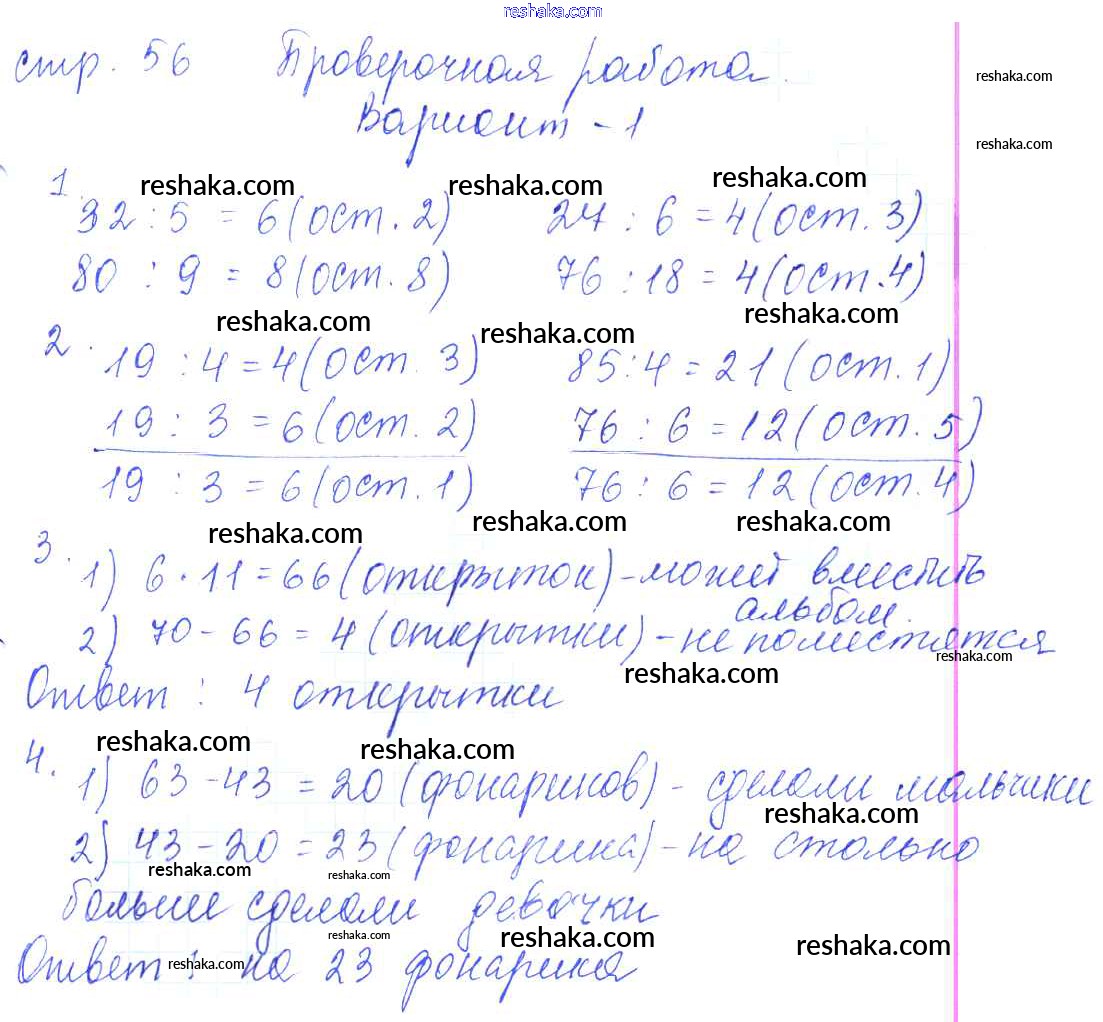 reshaka.com
стр. 56 Проверочная работа.
reshaka.com
Вариант - 1
reshaka.com
reshaka.com reshaka.com reshaka.com
1. 32 : 5 = 6 (ост. 2) 27 : 6 = 4 (ост. 3)
80 : 9 = 8 (ост. 8) 76 : 18 = 4 (ост. 4)
reshaka.com reshaka.com reshaka.com
2. 19 : 4 = 4 (ост. 3) 85 : 4 = 21 (ост. 1)
19 : 3 = 6 (ост. 2) 76 : 6 = 12 (ост. 5)
19 : 3 = 6 (ост. 1) 76 : 6 = 12 (ост. 4)
reshaka.com reshaka.com reshaka.com
3. 1) 6 · 11 = 66 (открыток) - может вместить
альбом.
2) 70 - 66 = 4 (открытки) - не поместятся
reshaka.com reshaka.com
Ответ : 4 открытки
reshaka.com reshaka.com
4. 1) 63 - 43 = 20 (фонариков) - сделали мальчики
reshaka.com
2) 43 - 20 = 23 (фонарика) - на столько
reshaka.com reshaka.com
больше сделали девочки
reshaka.com reshaka.com reshaka.com
Ответ : на 23 фонарика
reshaka.com